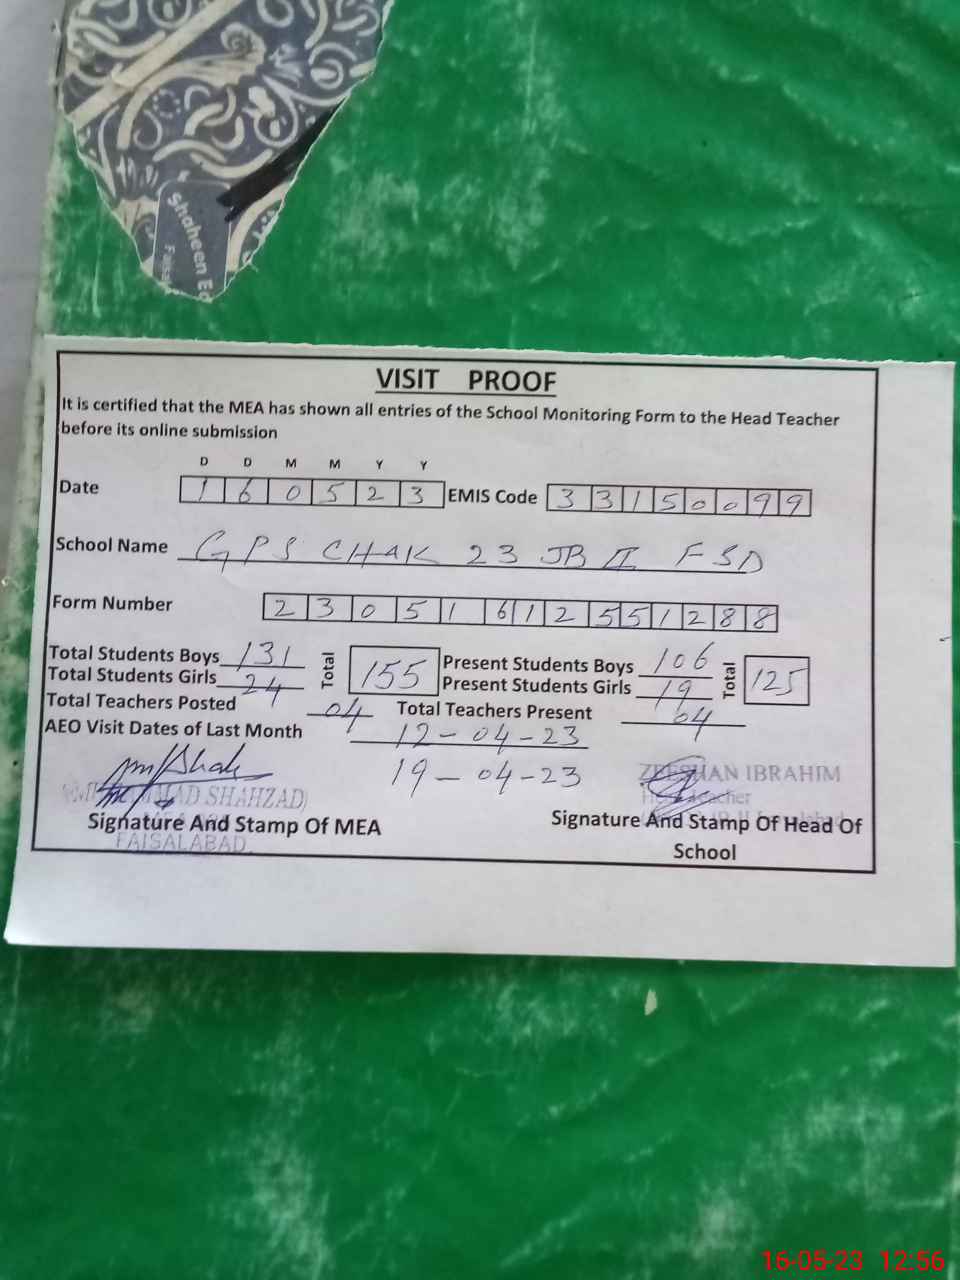 Shaheen
VISIT PROOF
It is certified that the MEA has shown all entries of the School Monitoring Form to the Head Teacher
before its online submission
D D M M Y Y
Date 1 6 0 5 2 3 EMIS Code 3 3 1 5 0 0 9 9
School Name GPS CHAK 23 JB II FSD
Form Number 2 3 0 5 1 6 1 2 5 5 1 2 8 8
Total Students Boys 131 Total 155 Present Students Boys 106 Total 125
Total Students Girls 24 Present Students Girls 19
Total Teachers Posted 04 Total Teachers Present 04
AEO Visit Dates of Last Month 12-04-23
19-04-23
ZEESHAN IBRAHIM
SHAHZAD)
Signature And Stamp Of MEA Signature And Stamp Of Head Of
School
FAISALABAD
16-05-23 12:56